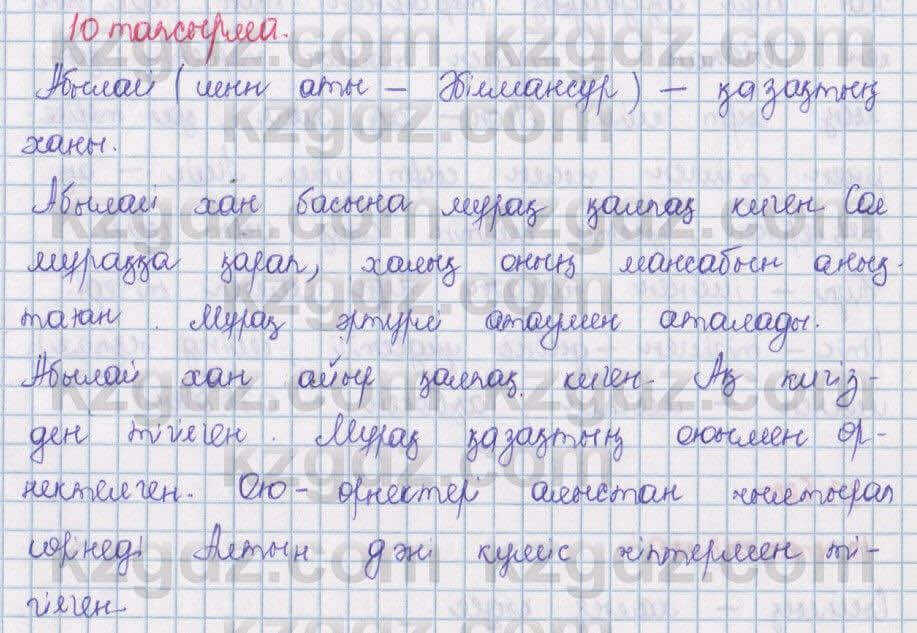 10 тапсырма.
Абылай (шын аты – Әбілмансұр) – қазақтың
ханы.
Абылай хан басына мұрақ қалпақ киген Сол
мұраққа қарап, халық оның мансабын анық-
таған. Мұрақ әртүрлі атаумен аталады.
Абылай хан айыр қалпақ киген. Ақ кигіз-
ден тігілген. Мұрақ қазақтың оюымен өр-
нектелген. Ою-өрнектері алыстан жылтырап
көрінеді Алтын және күміс жіптермен ті-
гілген
kzgdz.com